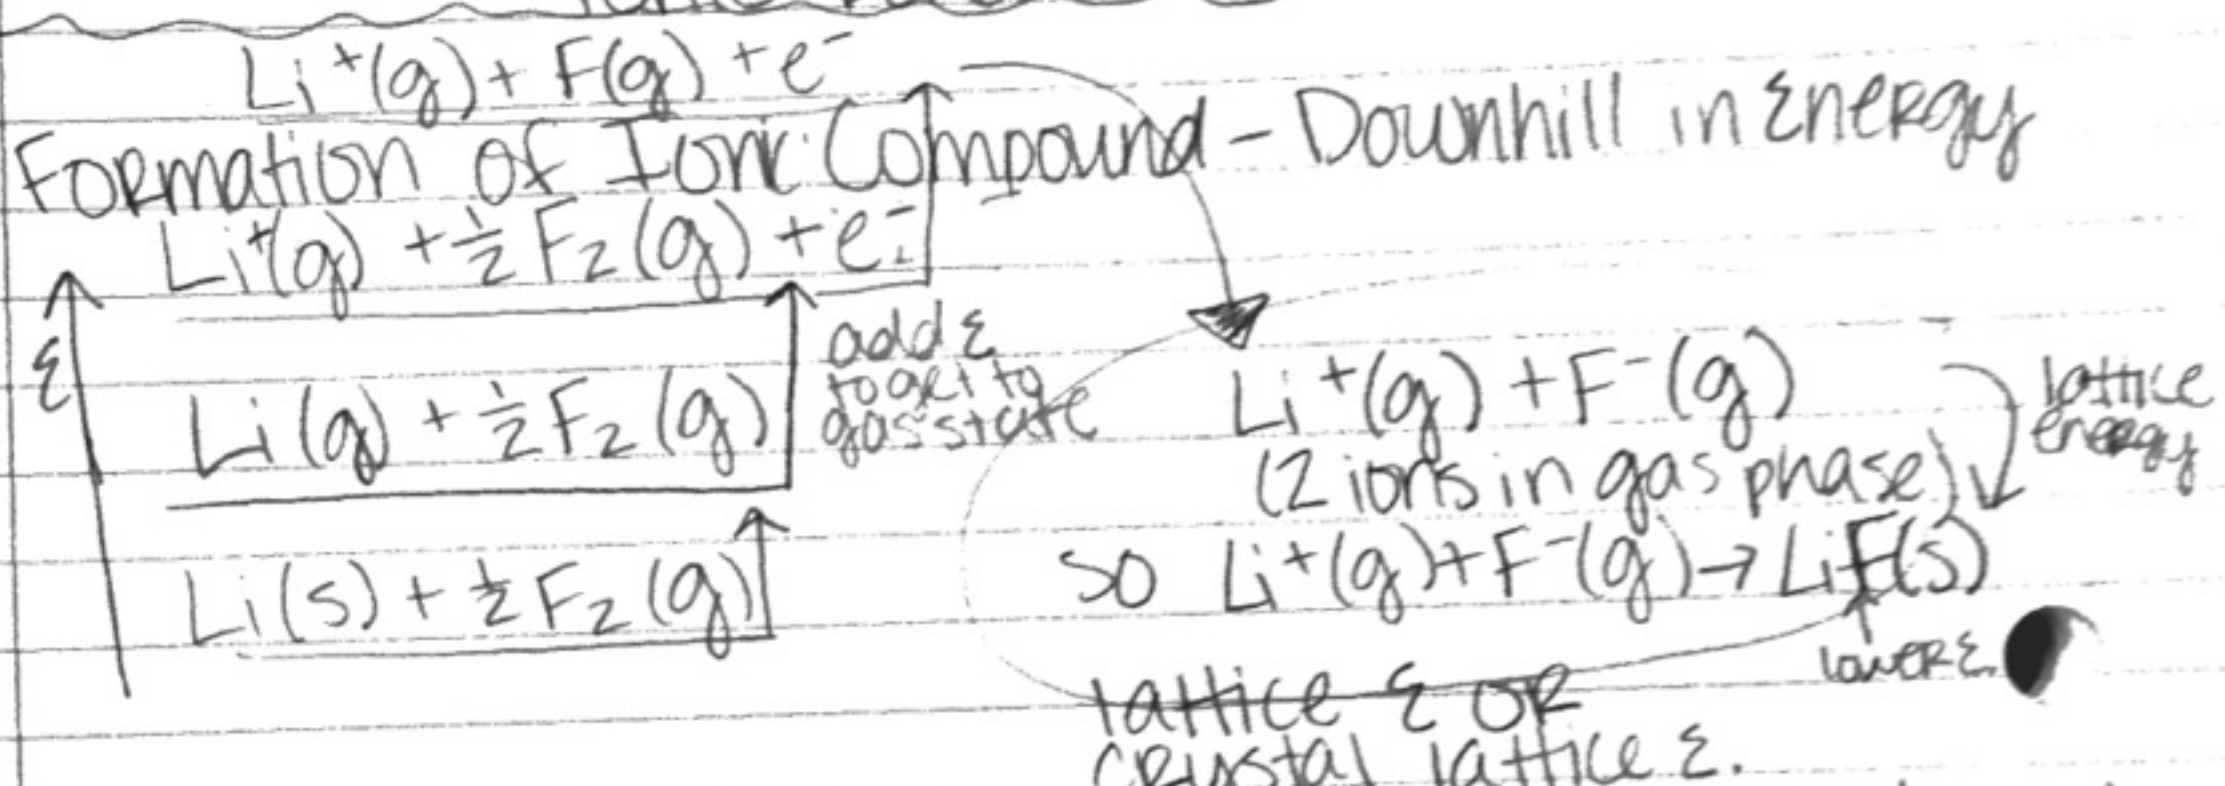 Li⁺(g) + F(g) + e⁻
Formation of Ionic Compound - Downhill in Energy
Li⁺(g) + ½ F₂ (g) + e⁻
ε
add ε
to get to
gas state
Li (g) + ½ F₂ (g)
Li⁺(g) + F⁻(g)
(2 ions in gas phase)
lattice
energy
Li (s) + ½ F₂ (g)
so Li⁺(g) + F⁻(g) → LiF(s)
lower ε
lattice ε OR
crystal lattice ε.